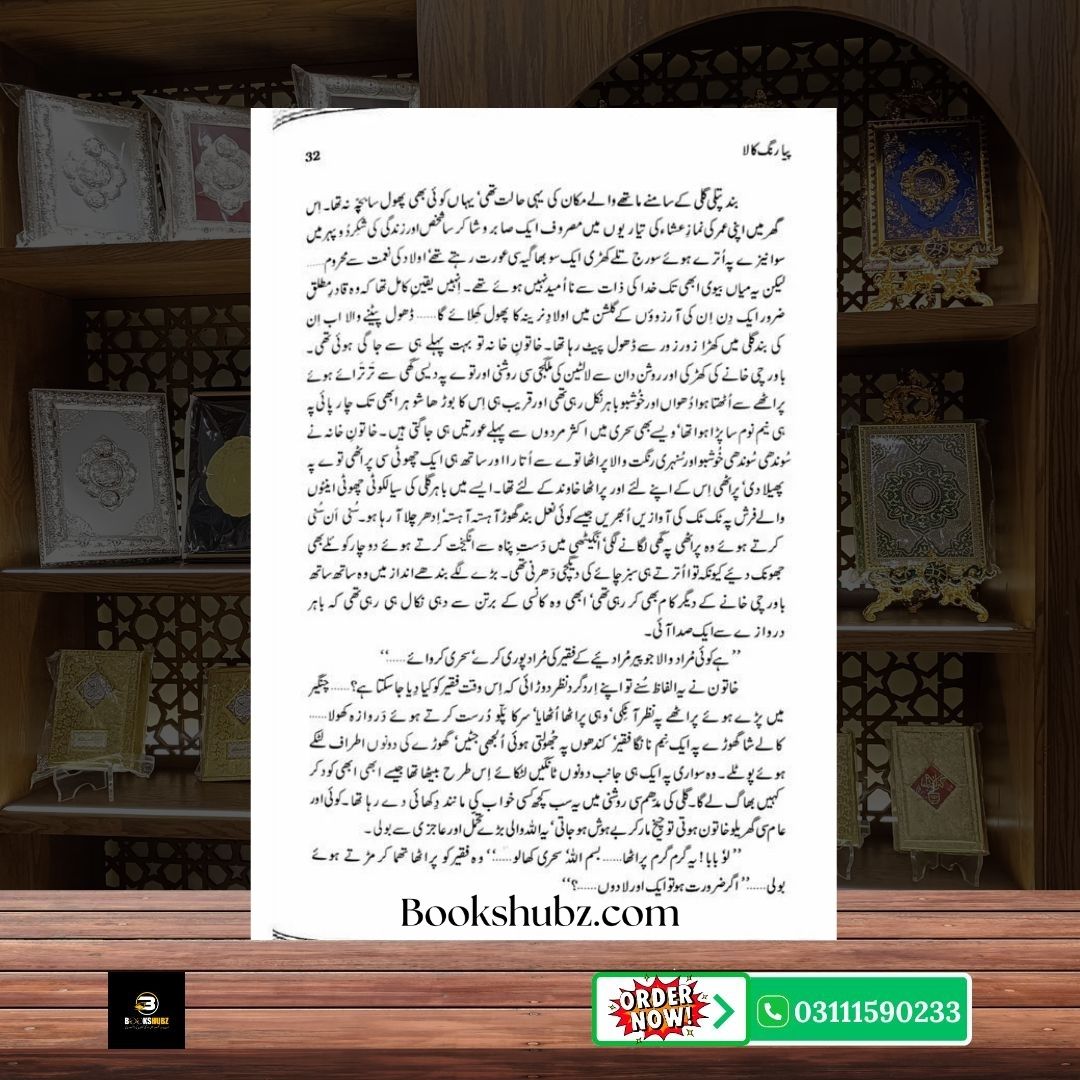 پیا رنگ کالا
32
بند پتلی گلی کے سامنے ماتھے والے مکان کی یہی حالت تھی‘ یہاں کوئی بھی پھول سا بچّہ نہ تھا۔ اِس
گھر میں اپنی عمر کی نمازِ عشاء کی تیاریوں میں مصروف ایک صابر و شاکر سا شخص اور زندگی کی شِکر دُوپہر میں
سوا نیزے پہ اُترے ہوئے سورج تلے کھڑی ایک سوبھاگیہ سی عورت رہتے تھے‘ اولاد کی نعمت سے محروم......
لیکن یہ میاں بیوی ابھی تک خدا کی ذات سے نااُمید نہیں ہوئے تھے۔ اِنہیں یقینِ کامل تھا کہ وہ قادرِ مطلق
ضرور ایک دِن اِن کی آرزوؤں کے گلشن میں اولادِ نرینہ کا پھول کِھلائے گا...... ڈھول پیٹنے والا اب اِن
کی بند گلی میں کھڑا زور زور سے ڈھول پیٹ رہا تھا۔ خاتونِ خانہ تو بہت پہلے ہی سے جاگی ہوئی تھی۔
باورچی خانے کی کھڑکی اور روشن دان سے لالٹین کی ملگجی سی روشنی اور توے پہ دیسی گھی سے تَرتَرائے ہوئے
پراٹھے سے اُٹھتا ہوا دُھواں اور خُوشبو باہر نکل رہی تھی اور قریب ہی اِس کا بوڑھا شوہر ابھی تک چارپائی پہ
ہی نیم نوم سا پڑا ہوا تھا‘ ویسے بھی سحری میں اکثر مردوں سے پہلے عورتیں ہی جاگتی ہیں۔ خاتونِ خانہ نے
سُوندھی سُوندھی خُوشبو اور سُنہری رنگت والا پراٹھا توے سے اُتارا اور ساتھ ہی ایک چھوٹی سی پراٹھی توے پہ
پھیلا دی‘ پراٹھی اِس کے اپنے لئے اور پراٹھا خاوند کے لئے تھا۔ ایسے میں باہر گلی کی سیالکوٹی چھوٹی اینٹوں
والے فرش پہ ٹک ٹک کی آوازیں اُبھریں جیسے کوئی نعل بند گھوڑا آہستہ آہستہ اِدھر چلا آ رہا ہو۔ سُنی اَن سُنی
کرتے ہوئے وہ پراٹھی پہ گھی لگانے لگی‘ انگیٹھی میں دَست پناہ سے انگیخت کرتے ہوئے دوچار کوئلے بھی
جھونک دیئے کیونکہ توا اُترتے ہی سبز چائے کی دیگچی دَھرنی تھی۔ بڑے لگے بندھے انداز میں وہ ساتھ ساتھ
باورچی خانے کے دیگر کام بھی کر رہی تھی‘ ابھی وہ کانسی کے برتن سے دہی نکال ہی رہی تھی کہ باہر
دروازے سے ایک صدا آئی۔
’’ہے کوئی مُراد والا جو پیر مُرادیئے کے فقیر کی مُراد پوری کرے‘ سحری کروائے......‘‘
خاتون نے یہ الفاظ سُنے تو اپنے اِردگرد نظر دوڑائی کہ اِس وقت فقیر کو کیا دِیا جا سکتا ہے؟...... چنگیر
میں پڑے ہوئے پراٹھے پہ نظر آ ٹِکی‘ وہی پراٹھا اُٹھایا‘ سر کا پلّو دُرست کرتے ہوئے دَروازہ کھولا......
کالے شا گھوڑے پہ ایک نیم نانگا فقیر‘ کندھوں پہ جُھولتی ہوئی اُلجھی جٹیں‘ گھوڑے کی دونوں اطراف لٹکے
ہوئے پوٹلے۔ وہ سواری پہ ایک ہی جانب دونوں ٹانگیں لٹکائے اِس طرح بیٹھا تھا جیسے ابھی ابھی کود کر
کہیں بھاگ لے گا۔ گلی کی مدھم سی روشنی میں یہ سب کچھ کسی خواب کی مانند دِکھائی دے رہا تھا۔ کوئی اور
عام سی گھریلو خاتون ہوتی تو چیخ مار کر بے ہوش ہو جاتی‘ یہ اللہ والی بڑے تحمّل اور عاجزی سے بولی۔
’’لو‘ بابا! یہ گرم گرم پراٹھا...... بسم اللہ‘ سحری کھا لو......‘‘ وہ فقیر کو پراٹھا تھما کر مڑتے ہوئے
بولی......’’اگر ضرورت ہو تو ایک اور لا دوں......؟‘‘
Bookshubz.com
BOOKSHUBZ
ORDER NOW!
03111590233